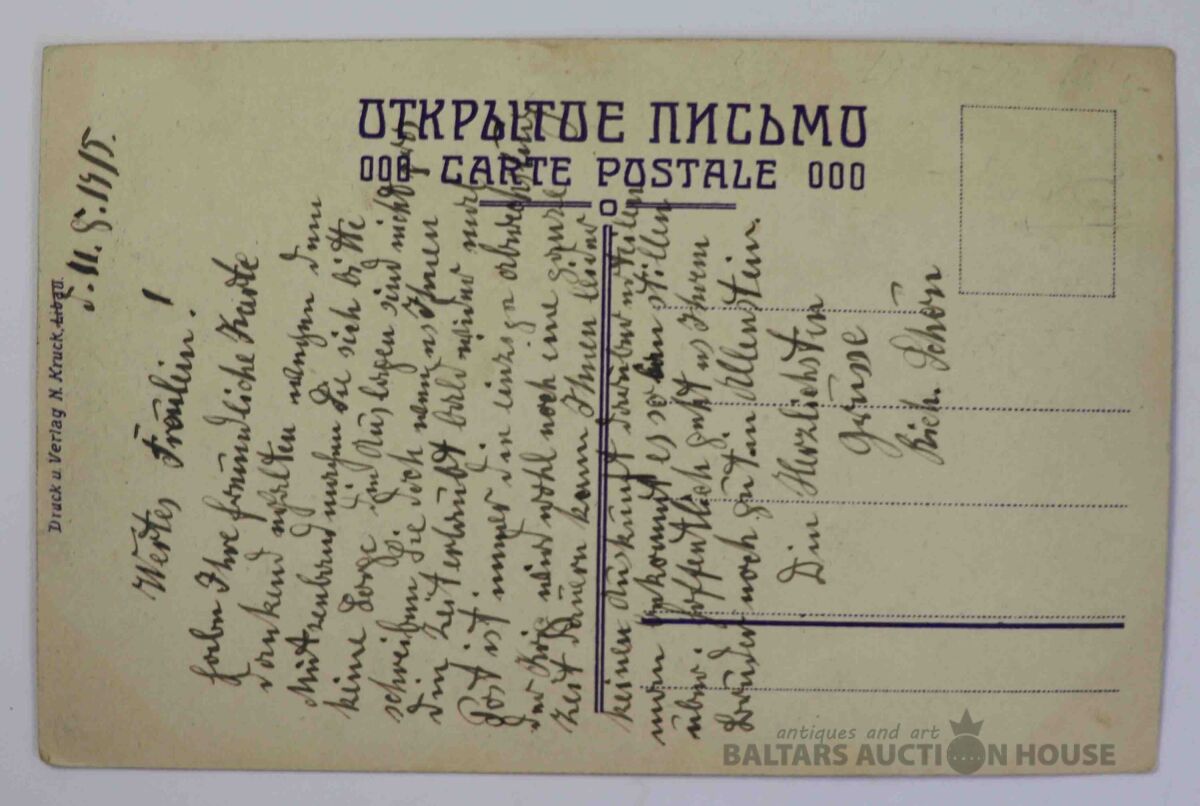 ОТКРЫТОЕ ПИСЬМО
CARTE POSTALE
Druck u. Verlag N. Kruck, Libau.
d. 11. 5. 1915.
Wertes Fräulein!
Ihre freundliche Karte
dankend erhalten wegen dem
Mützenband machen Sie sich bitte
keine Sorge die Auslagen sind nicht
schreiben Sie doch wenn es Ihnen
die Zeit erlaubt bald wieder mal
Post ist immer die einzige
der Krieg wird wohl noch eine ganze
Zeit dauern kann Ihnen leider
keine Auskunft darüber
man bekommt es so im stillen
über. Hoffentlich geht es Ihrem
Bruder noch gut in Allenstein.
Die Herzlichsten
Grüsse
Rich. Schön
antiques and art
BALTARS AUCTION HOUSE